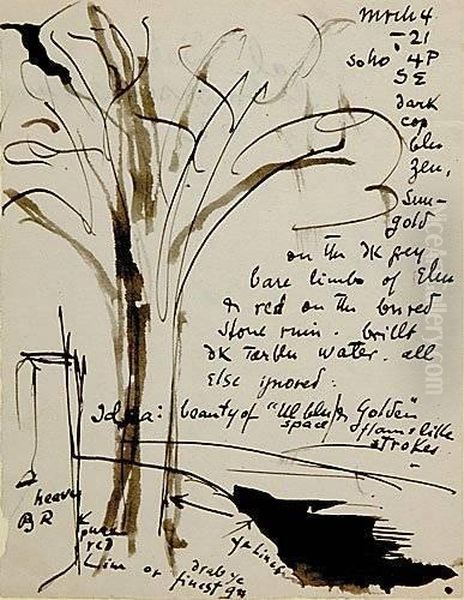 March 4
- 21
Soho 4P
SE
dark
cop
blu
zen,
Sun-
gold
on the dk grey
bare limbs of Elm
& red on the bured
stone ruin. brillt
dk Tarblu water. all
Else ignored.
Idea: beauty of "Ill blu & Golden"
space flamelike
strokes
heavy
BR
pure
red
Line or drab ye
finest gn